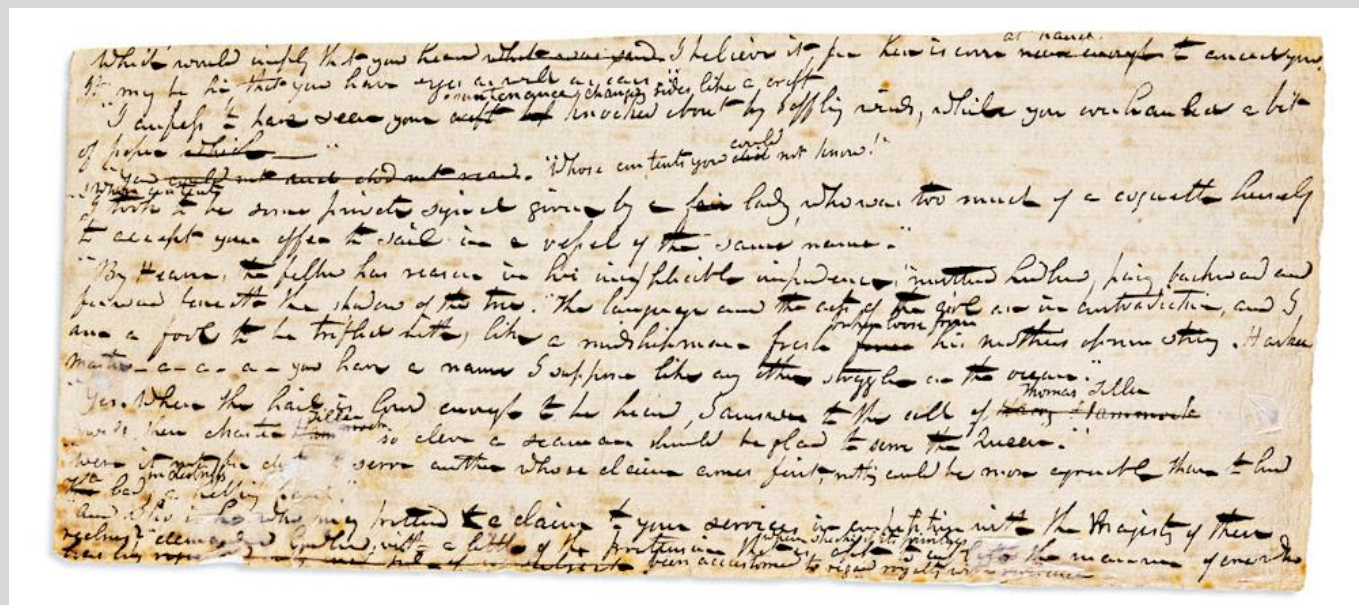 Which would imply that you hear what was said. I believe it, for here is one near enough at hand to answer you.
It may be that you have eyes as well as ears."
"I confess to have seen your craft countenance, changing sides, like a craft knocked about by baffling winds, while you overhauled a bit
of paper which — "
"You could not and did not read. "Whose contents you did could not know!"
"Whose contents I took to be some private signal given by a fair lady, who was too much of a coquette herself
to accept your offer to sail in a vessel of the same name."
"By Heaven, the fellow has reason in his inexplicable impudence," muttered Ludlow, pacing backward and
forward beneath the shadow of the tree. "The language and the acts of the girl are in contradiction, and I
am a fool to be trifled with, like a midshipman fresh from broken loose from his mothers apron string. Harkee
master—a—a—a—you have a name I suppose like any other straggler on the ocean."
"Yes. When the hail is loud enough to be heard, I answer to the call of Harry Hammock Thomas Tiller
then master Hammock Tiller so clever a seaman should be glad to serve the Queen."
"Were it not serve another whose claim comes first, nothing could be more agreeable than to lend
a lady in distress a helping hand."
"And who is he who may pretend to a claim to your services in competition with the Majesty of these
realms?" demanded Ludlow, with a little of the pretension that, when speaking of its privileges, is apt to the manner of one who
has been accustomed to regard royalty with reverence